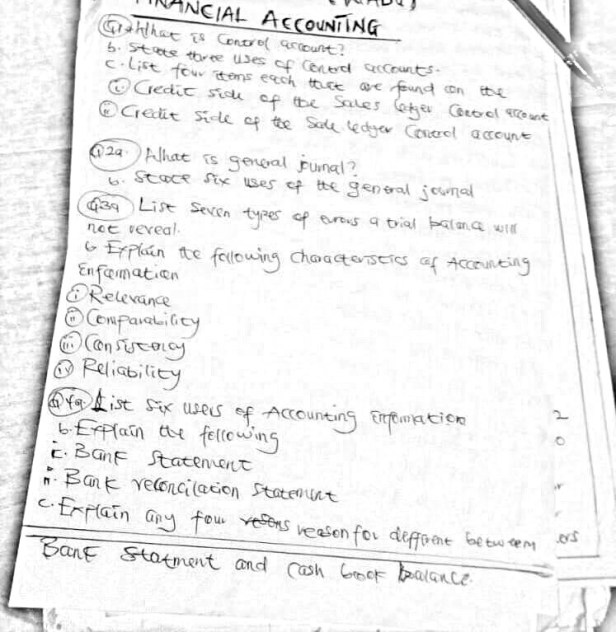 FINANCIAL ACCOUNTING
Q1a What is Control account?
b. State three uses of Control accounts.
c. List four items each that are found on the
i Credit side of the Sales ledger Control account
ii Credit side of the Sale ledger Control account
Q2a What is general journal?
b. State six uses of the general journal
Q3a List Seven types of errors a trial balance will
not reveal.
b Explain the following characteristics of Accounting
Enformation
i Relevance
ii Comparability
iii Consistency
iv Reliability
Q4a List six users of Accounting Enformation
b. Explain the following
i. Bank Statement
ii. Bank reconcilation Statement
c. Explain any four reason for deffrent between
Bank Statment and Cash book balance.